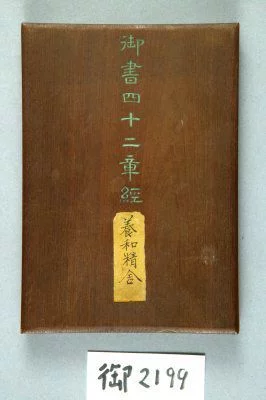 御書四十二章經
養和精舍
御2199